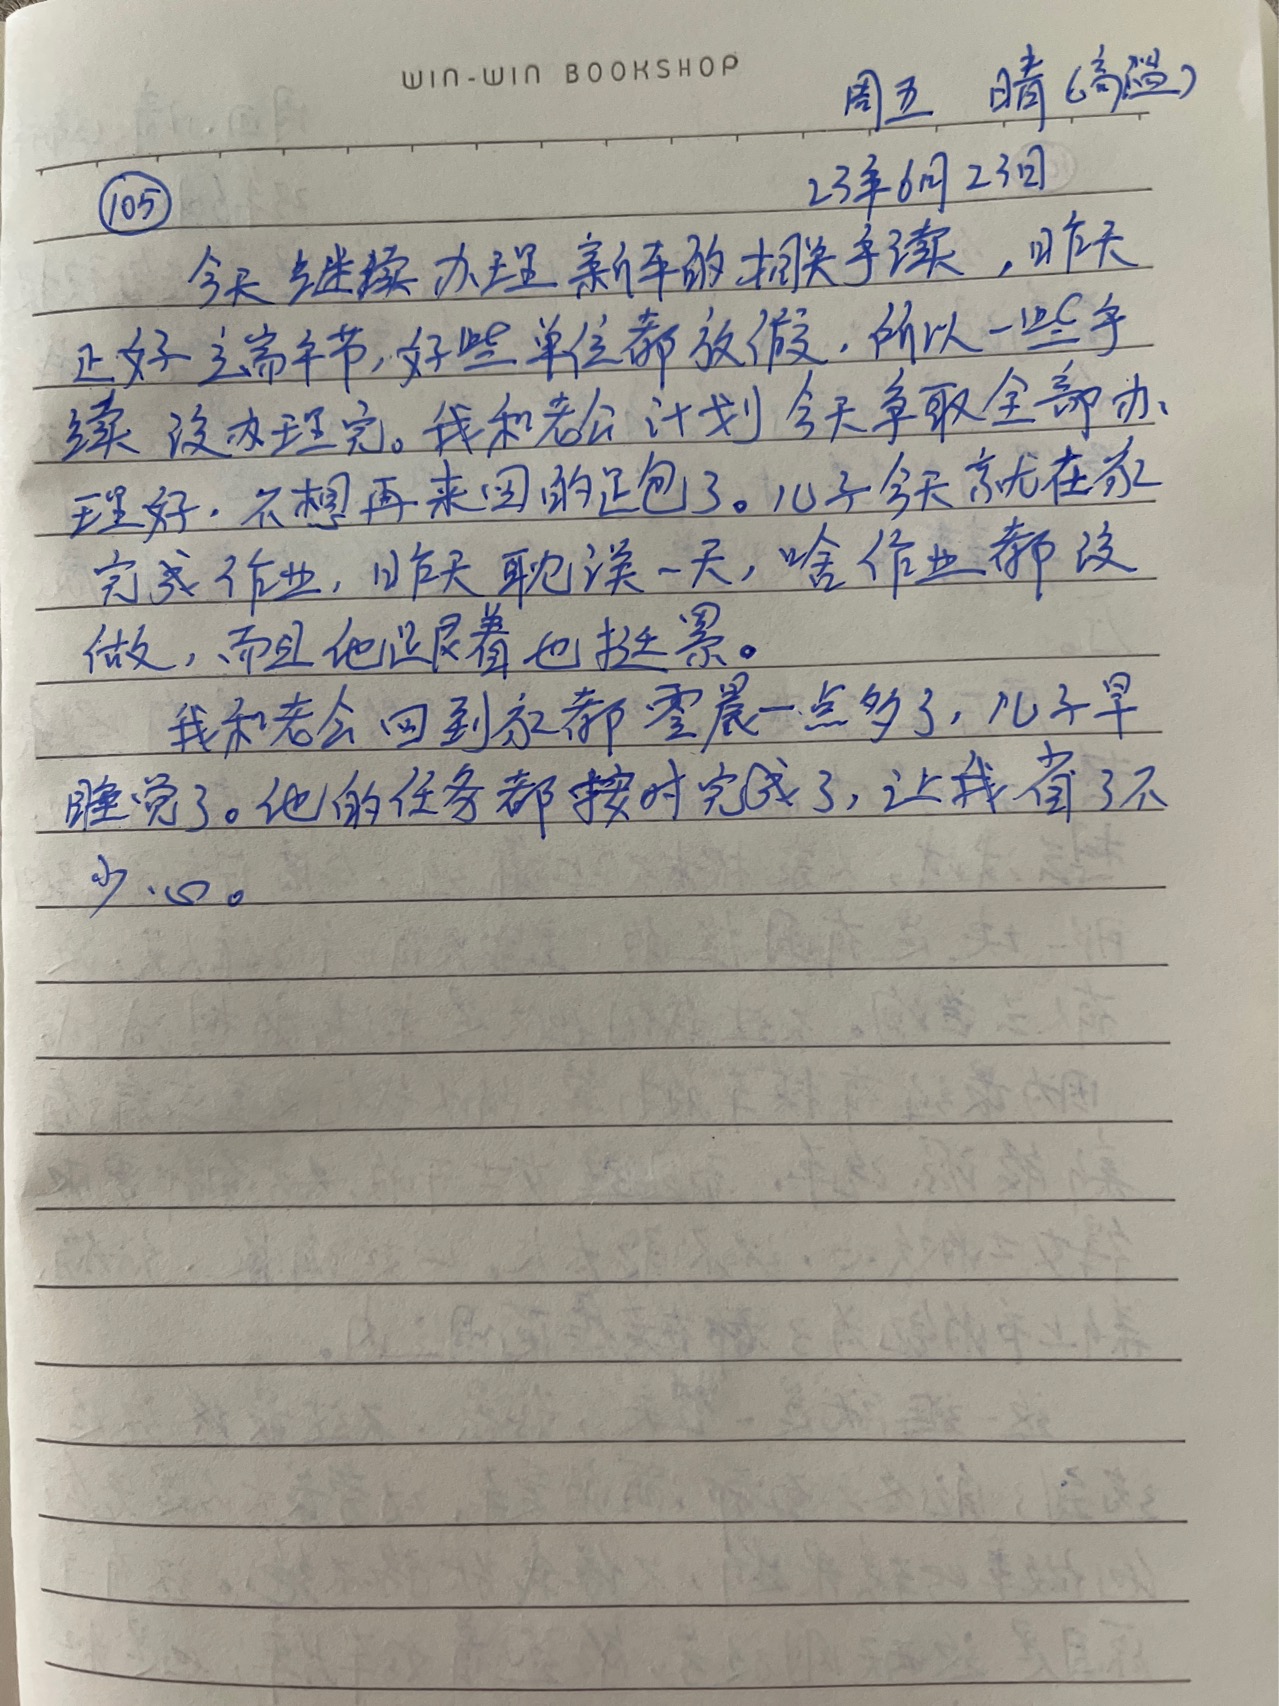 WIN-WIN BOOKSHOP
周五 晴(高温)
105 23年6月23日
今天继续办理新车的相关手续,昨天
正好是端午节,好些单位都放假,所以一些手
续没办理完。我和老公计划今天争取全部办
理好,不想再来回的跑了。儿子今天就在家
完成作业,昨天耽误一天,啥作业都没
做,而且他跟着也挺累。
我和老公回到家都零晨一点多了,儿子早
睡觉了。他的任务都按时完成了,让我省了不
少心。